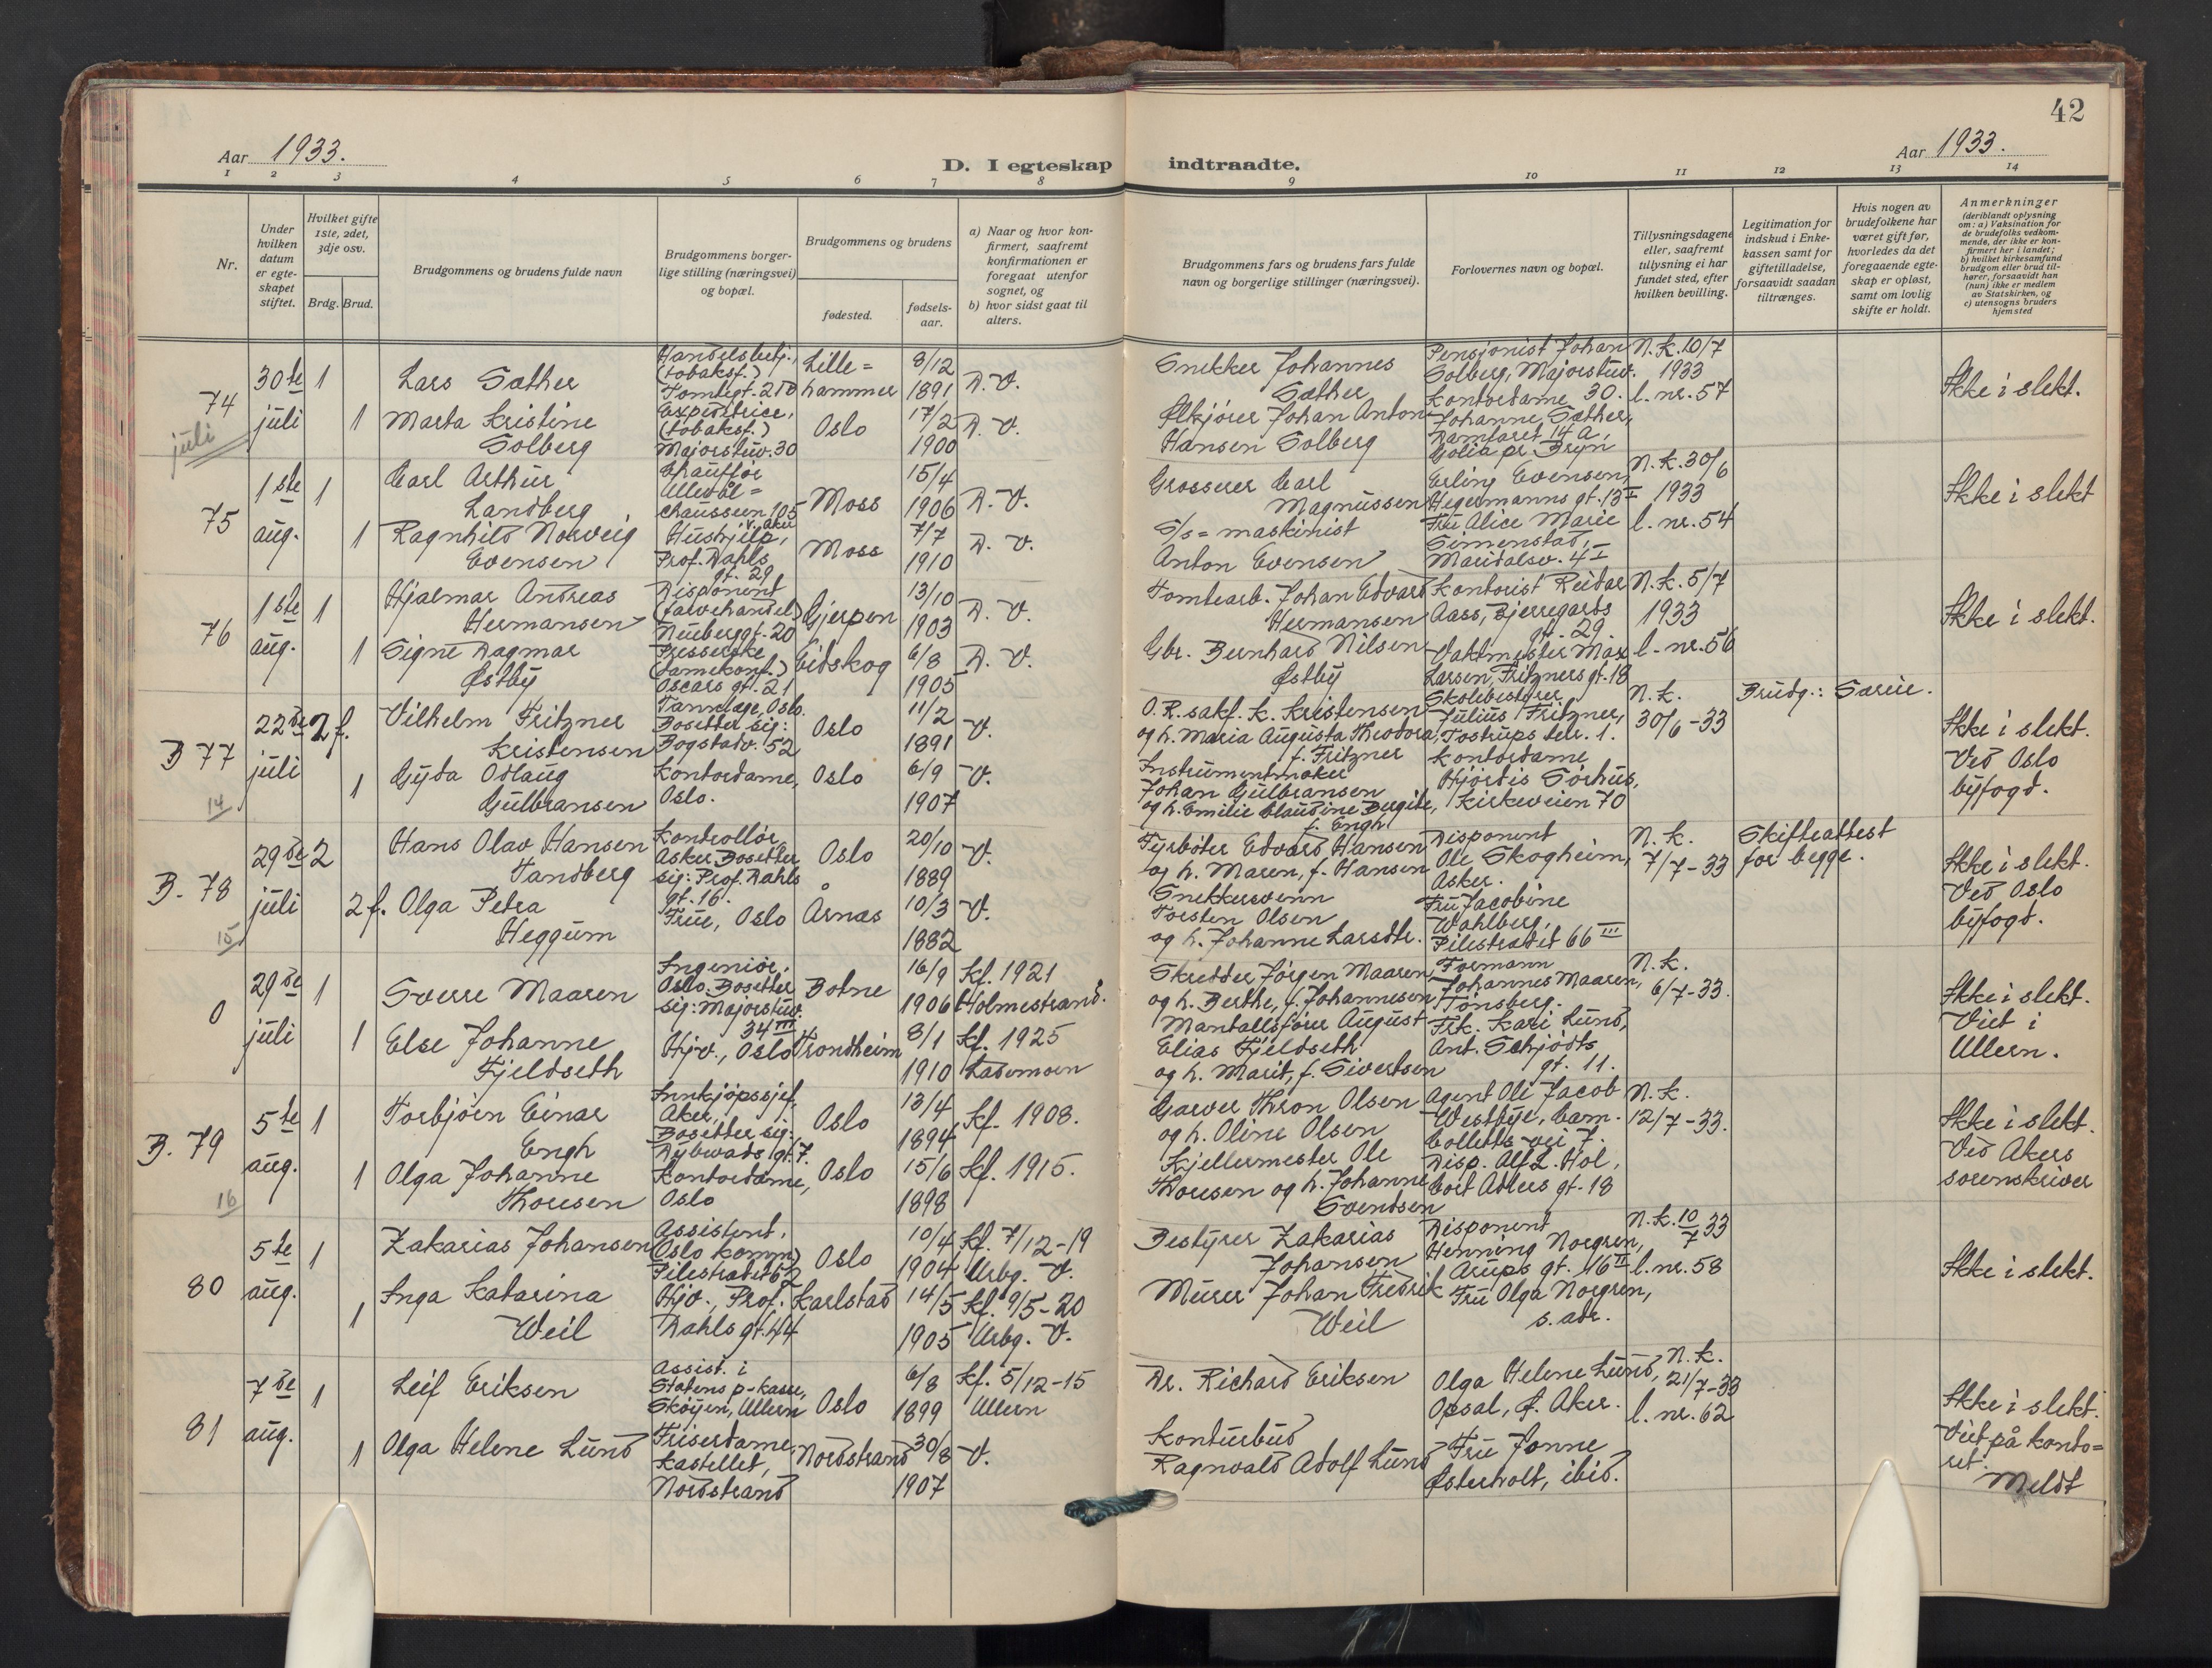 42
Aar 1933.
D. I egteskap indtraadte.
Aar 1933.
1 2 3 4 5 6 7 8 9 10 11 12 13 14
Nr.
Under
hvilken
datum
er egte-
skapet
stiftet.
Hvilket gifte
1ste, 2det,
3dje osv.
Brdg. Brud.
Brudgommens og brudens fulde navn
Brudgommens borger-
lige stilling (næringsvei)
og bopæl.
Brudgommens og brudens
fødested.
fødsels-
aar.
a) Naar og hvor kon-
firmert, saafremt
konfirmationen er
foregaat utenfor
sognet, og
b) hvor sidst gaat til
alters.
Brudgommens fars og brudens fars fulde
navn og borgerlige stillinger (næringsvei).
Forlovernes navn og bopæl.
Tillysningsdagene
eller, saafremt
tillysning ei har
fundet sted, efter
hvilken bevilling.
Legitimation for
indskud i Enke-
kassen samt for
giftetilladelse,
forsaavidt saadan
tiltrænges.
Hvis nogen av
brudefolkene har
været gift før,
hvorledes da det
foregaaende egte-
skap er opløst,
samt om lovlig
skifte er holdt.
Anmerkninger
(deriblandt oplysning
om: a) Vaksination for
de brudefolks vedkom-
mende, der ikke er kon-
firmert her i landet;
b) hvilket kirkesamfund
brudgom eller brud til-
hører, forsaavidt han
(hun) ikke er medlem
av Statskirken, og
c) utensogns bruders
hjemsted
74
juli
30te
juli
1
1
Lars Sæther
Marta Kristine
Solberg
Handelsbetj.,
(tobaksf.)
Tomtegt. 21
Expeditrice,
(tobaksf.)
Majorstuv. 30
Lille=
hammer
Oslo
8/12
1891
17/2
1900
D. V.
D. V.
Snekker Johannes
Sæther
Ølkjører Johan Anton
Hansen Solberg
Pensjonist Johan
Solberg, Majorstuv.
Kontordame 30.
Johanne Sæther,
Damfaret 14 a,
Golia pr Bryn
N.k. 10/7
1933
l. nr. 57
Ikke i slekt.
75
1ste
aug.
1
1
Carl Arthur
Landberg
Ragnhild Norveig
Evensen
Chauffør
Ullevål=
chausseen 105
v. Aker
Hushjelp,
Prof. Dahls
gt. 29
Moss
Moss
15/4
1906
7/7
1910
D. V.
D. V.
Grosserer Carl
Magnussen
S/s= maskinist
Anton Evensen
Erling Evensen,
Hegermanns gt. 13 I
Fru Alice Marie
Simenstad,
Maridalsv. 4 I
N.k. 30/6
1933
l. nr. 54
Ikke i slekt
76
1ste
aug.
1
1
Hjalmar Andreas
Hermansen
Signe Dagmar
Østby
Disponent
(farvehandel)
Neuberggt. 20
Frisserske
(damekonf.)
Oscars gt. 21
Gjerpen
Eidskog
13/10
1903
6/8
1905
D. V.
D. V.
Tomtearb. Johan Edvard
Hermansen
Gbr. Bernhard Nilsen
Østby
Kontorist Reidar
Aass, Bjerregards
gt. 29.
Vaktmester Max
Larsen, Fritzners gt. 18
N.k. 5/7
1933
l. nr. 56
Ikke i slekt.
B 77
14
22de
juli
2 f.
1
Vilhelm Fritzner
Kristensen
Gyda Odlaug
Gulbransen
Tannlæge, Oslo.
Bosetter sig:
Bogstadv. 52
Kontordame,
Oslo.
Oslo
Oslo
11/2
1891
6/9
1907
V.
V.
O.R.sakf. K. Kristensen
og h. Maria Augusta Theodora,
f. Fritzner
Instrumentmaker
Johan Gulbransen
og h. Emilie Claudine Bergite,
f. Engh
Skolebestyrer
Julius Fritzner,
Tostrups terr. 1.
Kontordame
Hjørdis Sörhus,
Kirkeveien 70
N. k.
30/6-33
Brudg.: Særeie.
Ikke i slekt.
Ved Oslo
byfogd.
B. 78
15
29de
juli
2
2 f.
Hans Olav Hansen
Tandberg
Olga Petra
Heggum
Kontrollör,
Asker. Bosetter
sig: Prof. Dahls
gt. 16.
Frue, Oslo
Oslo
Årnæs
20/10
1889
10/3
1882
V.
V.
Fyrböter Edvard Hansen
og h. Maren, f. Hansen
Snekkersvenn
Torsten Olsen
og h. Johanne Larsdtr.
Disponent
Ole Skogheim,
Asker.
Fru Jacobine
Wahlberg,
Pilestrædet 66 III
N. k.
7/7-33
Skifteattest
for begge.
Ikke i slekt.
Ved Oslo
byfogd.
0
29de
juli
1
1
Sverre Maaren
Else Johanne
Fjeldseth
Ingeniör,
Oslo. Bosetter
sig: Majorstuv.
34 III
Hjv., Oslo
Botne
Trondheim
16/9
1906
8/1
1910
Kf. 1921
Holmestrand.
Kf. 1925
Lademoen
Skredder Jörgen Maaren
og h. Berthe, f. Johannesen
Mantallsförer August
Elias Fjeldseth
og h. Marit, f. Sivertsen
Formann
Johannes Maaren,
Tönsberg.
Frk. Kari Lund,
Ant. Schjödts
gt. 11.
N. k.
6/7-33.
Ikke i slekt.
Viet i
Ullern.
B. 79
16
5te
aug.
1
1
Torbjörn Einar
Engh
Olga Johanne
Thoresen
Innkjöpssjef,
Aker.
Bosetter sig:
Dybwads gt. 7.
Kontordame,
Oslo
Oslo
Oslo
13/4
1894
15/6
1898
Kf. 1908.
Kf. 1915.
Garver Thron Olsen
og h. Oline Olsen
Kjellermester Ole
Thoresen og h. Johanne
Svendsen
Agent Ole Jacob
Westbye, Cam.
Colletts vei 7.
Disp. Alf L. Hol,
Cort Adlers gt. 18
N. k.
12/7-33.
Ikke i slekt.
Ved Akers
sorenskriver
80
5te
aug.
1
1
Zakarias Johansen
Inga Katarina
Weil
Assistent,
(Oslo komm)
Pilestrædet 62
Hjv., Prof.
Dahls gt. 44
Oslo
Karlstad
10/4
1904
14/5
1905
Kf. 7/12-19
Urbg. V.
Kf. 9/5-20
Urbg. V.
Bestyrer Zakarias
Johansen
Murer Johan Fredrik
Weil
Disponent
Henning Norgren,
Arups gt. 16 II
Fru Olga Norgren,
s. adr.
N.k. 10/7 33
l. nr. 58
Ikke i slekt.
81
7de
aug.
1
1
Leif Eriksen
Olga Helene Lund
Assist. i
Statens p-kasse,
Sköyen, Ullern
Friserdame,
Kastellet,
Nordstrand
Oslo
Nordstrand
6/8
1899
30/8
1907
Kf. 5/12-15
Ullern
V.
Dr. Richard Eriksen
Konturbud
Ragnvald Adolf Lund
Olga Helene Lund,
Opsal, Ø. Aker.
Fru Jonne
Østerholt, ibid.
N. k.
21/7-33
l. nr. 62
Ikke i slekt.
Viet på konto=
ret.
Meldt